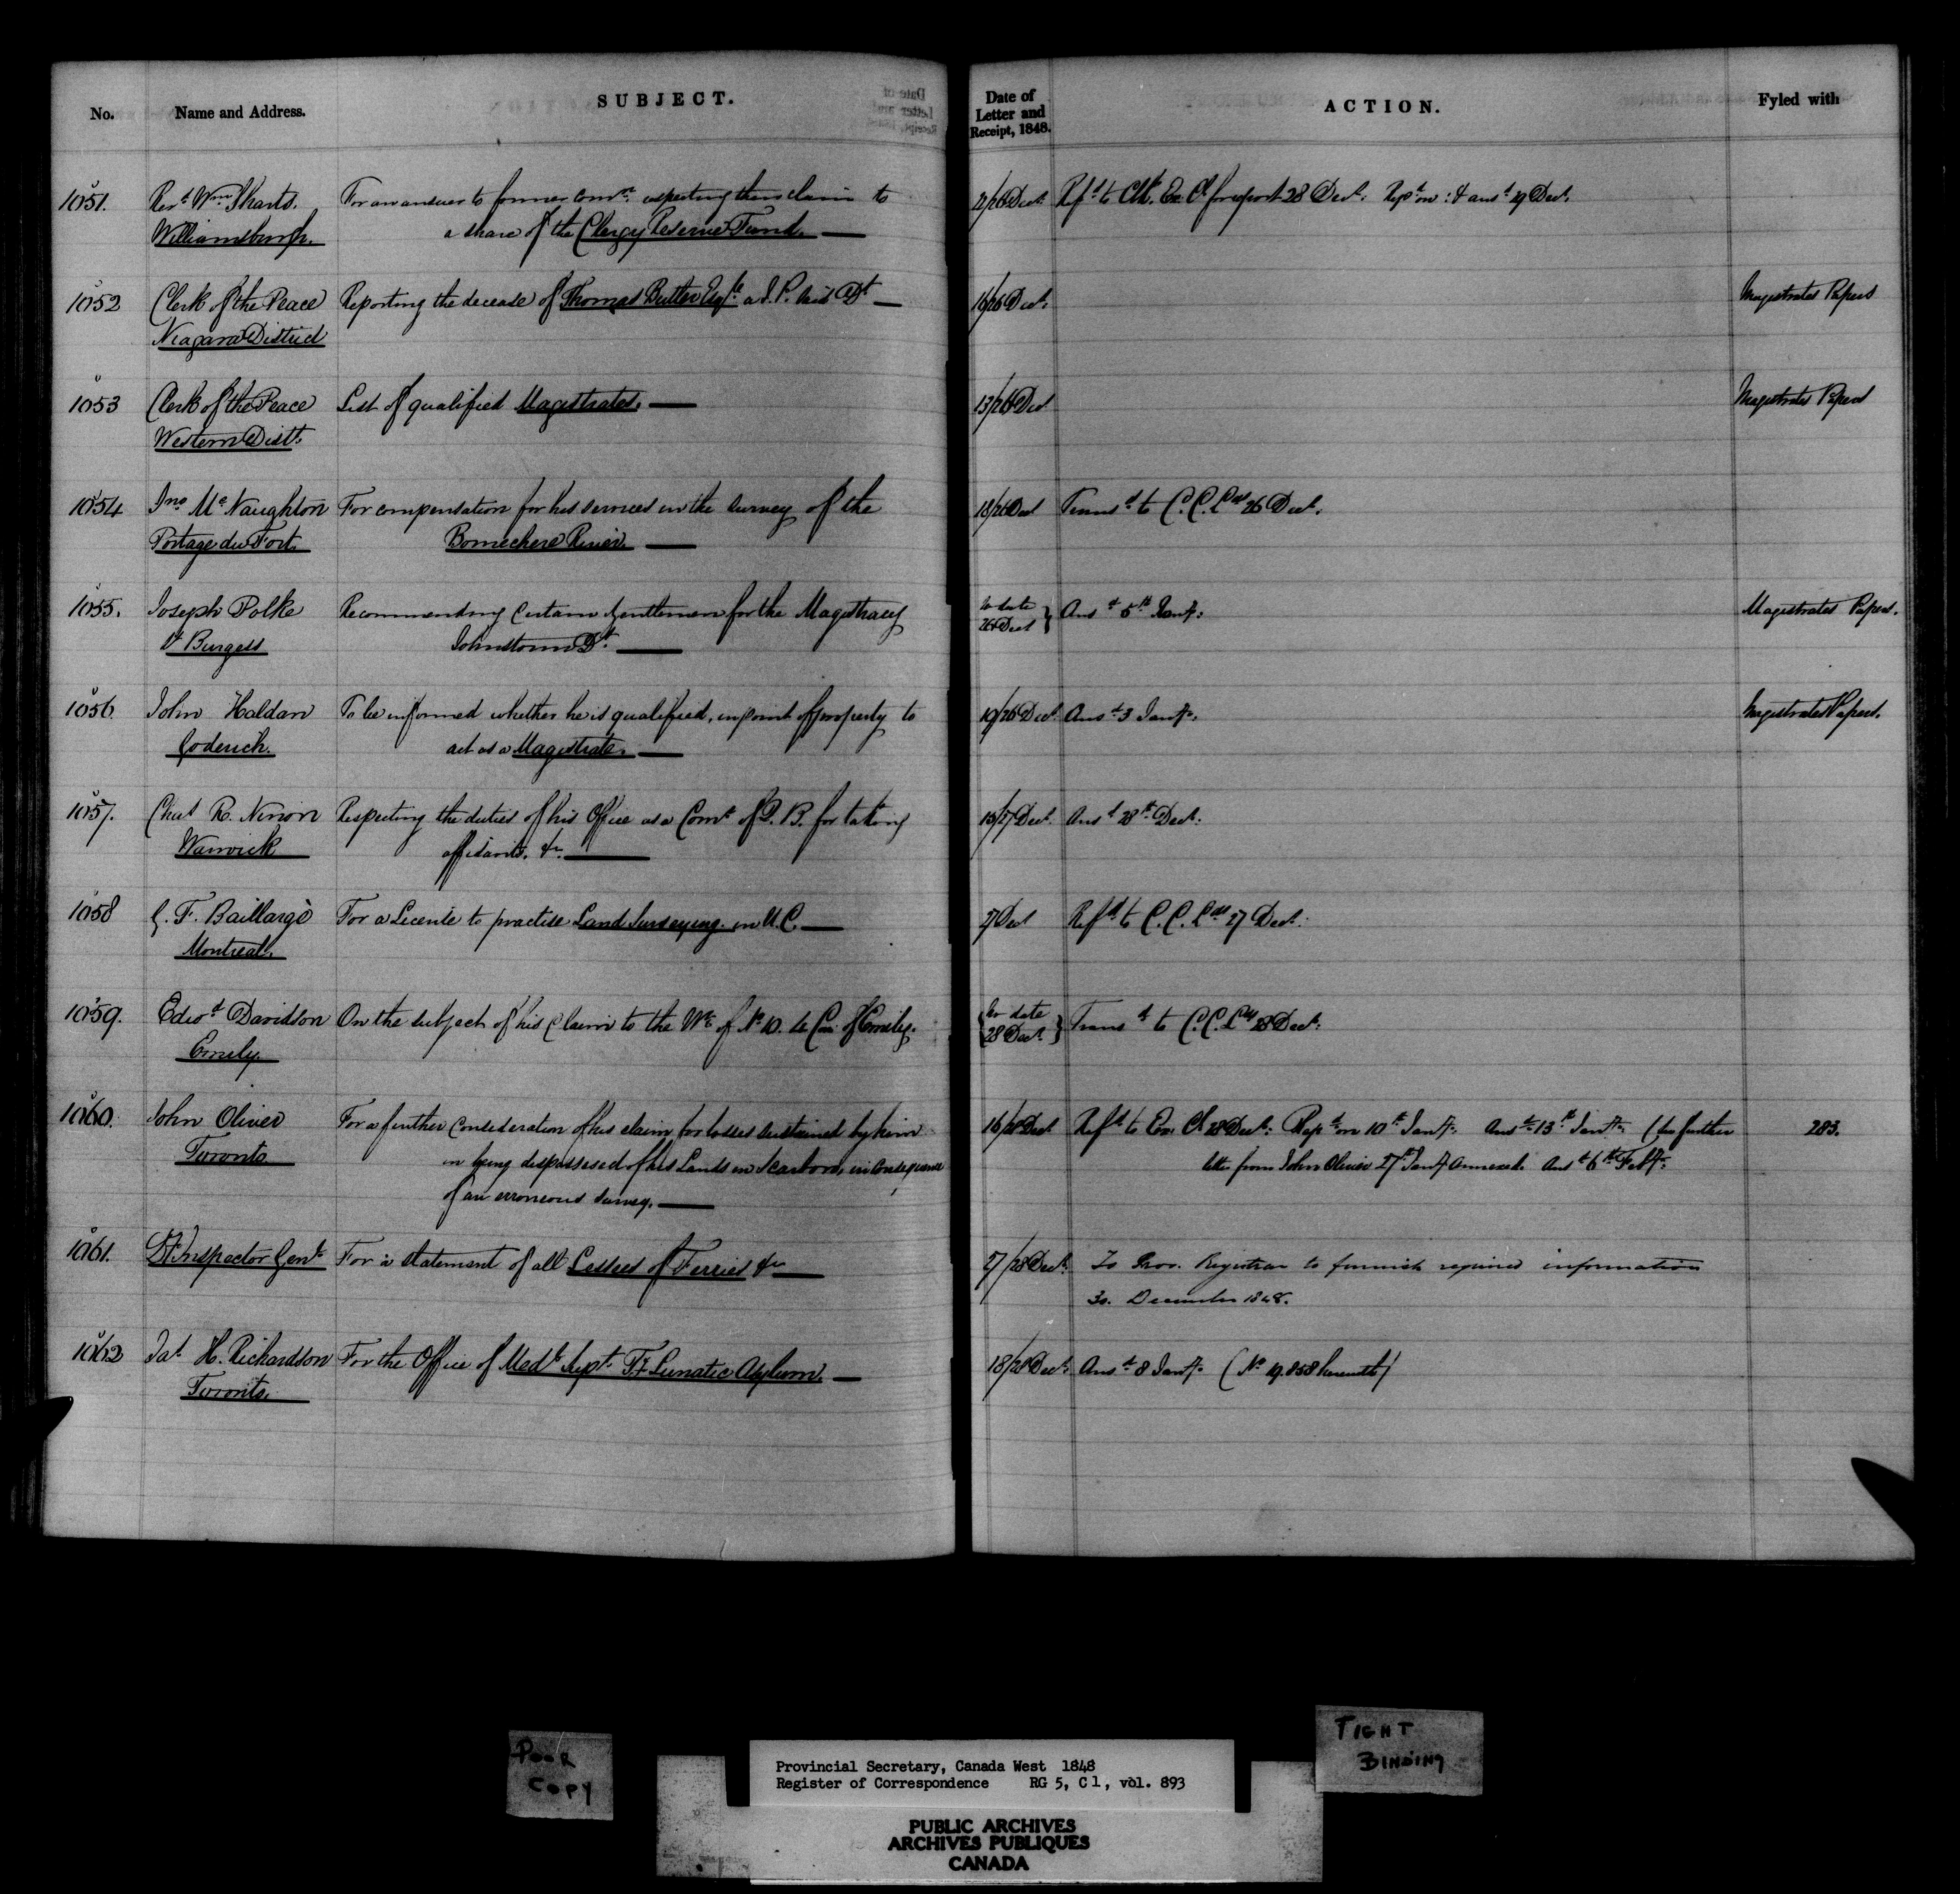 No.
Name and Address.
SUBJECT.
Date of
Letter and
Receipt, 1848.
ACTION.
Fyled with
1051. Revd Wm Sharts. For an answer to former comn: respecting their claim to 22/26 Dect: Refd to Clk. Ex. Cl for report 28 Dect. Repd on: & ansd 29 Dect.
Williamsburgh. a share of the Clergy Reserve Fund.
1052 Clerk of the Peace Reporting the decease of Thomas Butler Esqre a J. P. said Dt 16/26 Dect: Magistrates Papers
Niagara District
1053 Clerk of the Peace List of qualified Magistrates. 13/26 Dect Magistrates Papers
Western Distt.
1054 Jno. McNaughton For compensation for his services in the survey of the 18/26 Dect Transd to C. C. Lds 26 Dect.
Portage du Fort. Bonnechere River.
1055. Joseph Polke Recommending certain Gentlemen for the Magistracy no date Ansd 5th Jany: Magistrates Papers.
Sth Burgess Johnstown Dt. 26 Dect
1056 John Haldan To be informed whether he is qualified, in point of property to 19/26 Dect Ansd 3 Jany. Magistrates Papers.
Goderich. act as a Magistrate.
1057. Chas R. Nixon Respecting the duties of his Office as a Comr of Q. B. for taking 15/27 Dect. Ansd 28th Dect:
Warwick affidavits, &c.
1058 G. F. Baillargé For a License to practise Land Surveying in U. C. 27 Dect Refd to C. C. Lds 27 Dect:
Montreal.
1059. Edwd Davidson On the subject of his claim to the W½ of No 10. 4 Con. of Emily. no date Transd to C. C. Lds 28 Dect:
Emily. 28 Dect.
1060. John Oliver For a further consideration of his claim for losses sustained by him 16/28 Dect Refd to Ex. Cl 28 Dect: Repd on 10th Jany. Ansd 13th Jany. (See further 283.
Toronto in being dispossessed of his Lands in Scarboro, in consequence letter from John Oliver 27th Jany Annexed. Ansd 6th Feby.
of an erroneous survey.
1061. Dt Inspector Genl For a statement of all Lessees of Ferries &c 27/28 Dect. To Prov. Registrar to furnish required information
30. December 1848.
1062 Jas H. Richardson For the Office of Medl Supt. Ty Lunatic Asylum. 18/28 Dect. Ansd 8 Jany. (No 19.858 herewith)
Toronto.
POOR
COPY
TIGHT
BINDING
Provincial Secretary, Canada West 1848
Register of Correspondence RG 5, C 1, vol. 893
PUBLIC ARCHIVES
ARCHIVES PUBLIQUES
CANADA